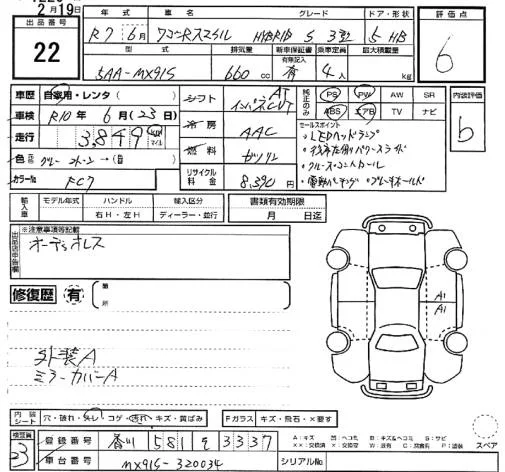 2月19日
出品番号 22
年式 R7 6月
車名 ワゴンRスマイル
グレード HYBRID S 3型
ドア・形状 5 HB
評価点 6
型式 5AA-MX91S
排気量 660 cc
新車保証書 有無記入 有
乗車定員 4人
最大積載量 kg
車歴 自家用・レンタ( )
車検 R10年6月(23日)
走行 3,849 km マイル
色 グレー ツートーン→( )
カラーNo. FC7
シフト AT インパネCVT
冷房 AAC
燃料 ガソリン
リサイクル料金 8,390円
純正のみ PS PW AW SR
ABS エアB TV ナビ
セールスポイント
・LEDヘッドランプ
・クルーズコントロール
・電動パーキング ・ブレーキホールド
内装評価 b
輸入車 モデル年式 ハンドル 右H・左H 輸入区分 ディーラー・並行
書類有効期限 月 日迄
※注意事項等記載
出品店申告欄
オーディオレス
修復歴 有 ( 箇所
外装A
ミラーカバーA
A1
A1
内装シート 穴・破れ・外し・コゲ・汚れ・キズ・黄ばみ
Fガラス キズ・飛石・×要す
検査員 23
登録番号 香川 581 を 3337
車台番号 MX91S-320034
シリアルNo.
A:キズ U:ヘコミ B:キズ&ヘコミ S:サビ
スペア